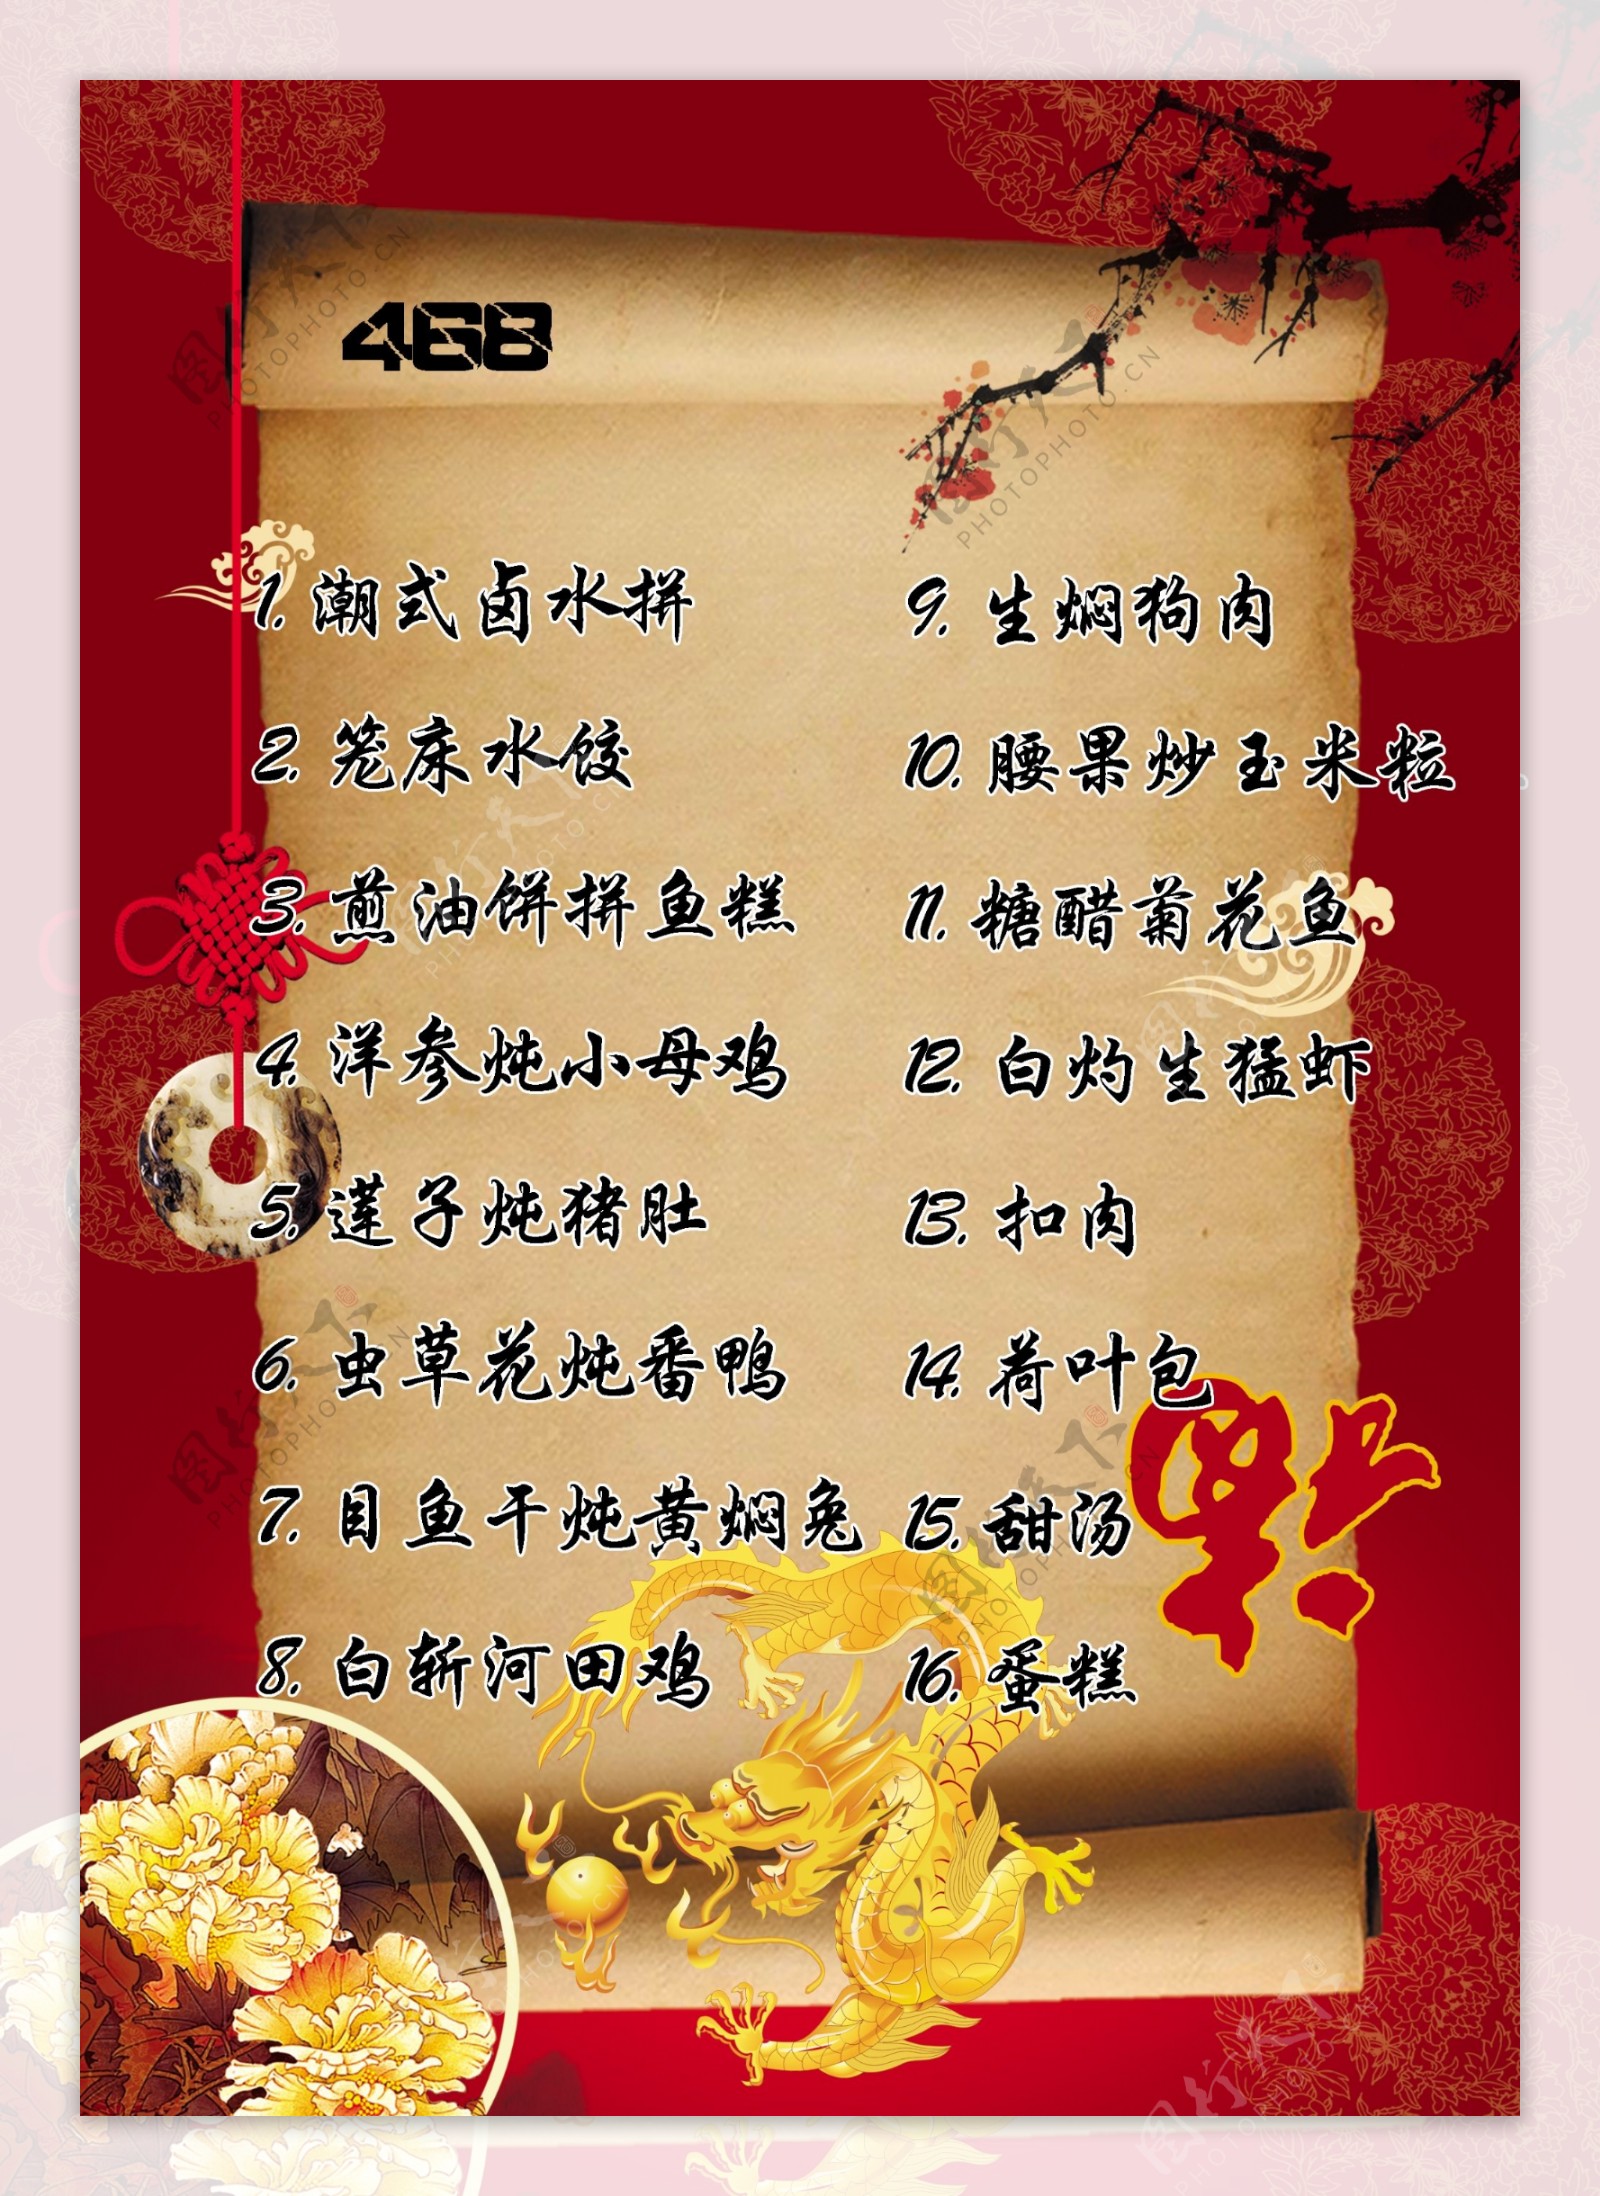 468
1. 潮式卤水拼
2. 笼床水饺
3. 煎油饼拼鱼糕
4. 洋参炖小母鸡
5. 莲子炖猪肚
6. 虫草花炖番鸭
7. 目鱼干炖黄焖兔
8. 白斩河田鸡
9. 生焖狗肉
10. 腰果炒玉米粒
11. 糖醋菊花鱼
12. 白灼生猛虾
13. 扣肉
14. 荷叶包
15. 甜汤
16. 蛋糕
福
图行天下
PHOTOPHOTO.CN